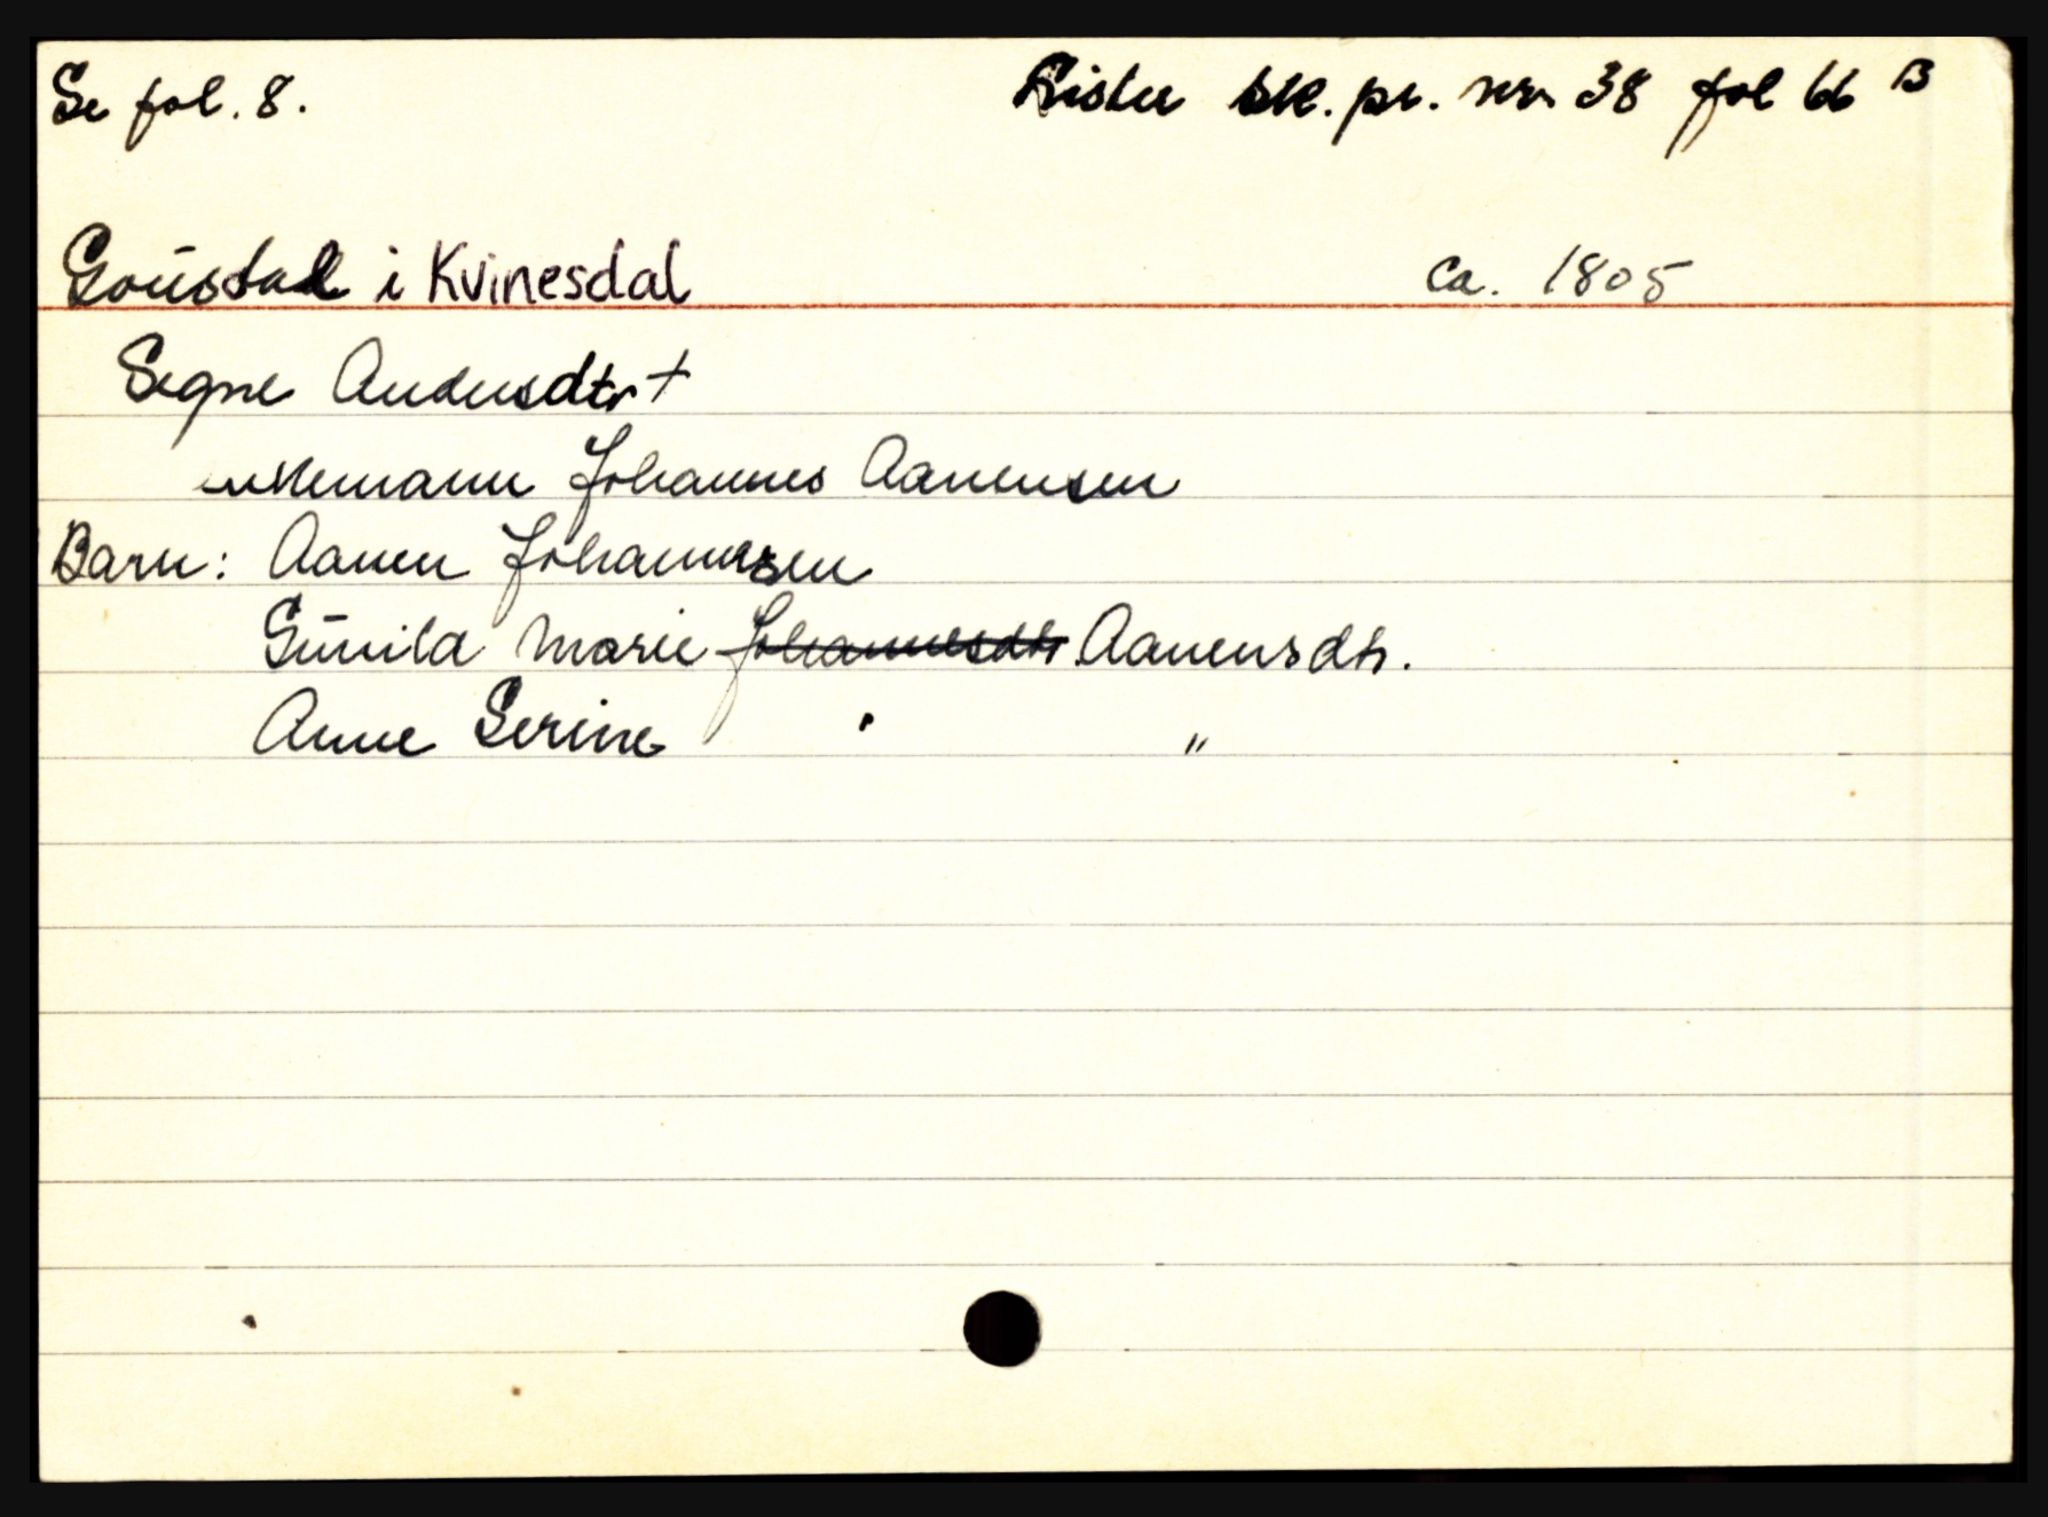 Se fol. 8.
Lister sk. pr. nr. 38 fol 66 B
Goüstad i Kvinesdal ca. 1805
Segne Andersdtr +
enkemann Johannes Aanensen
Barn: Aanen Johannesen
Günild Marie Johannesdtr. Aanensdtr.
Anne Serine "